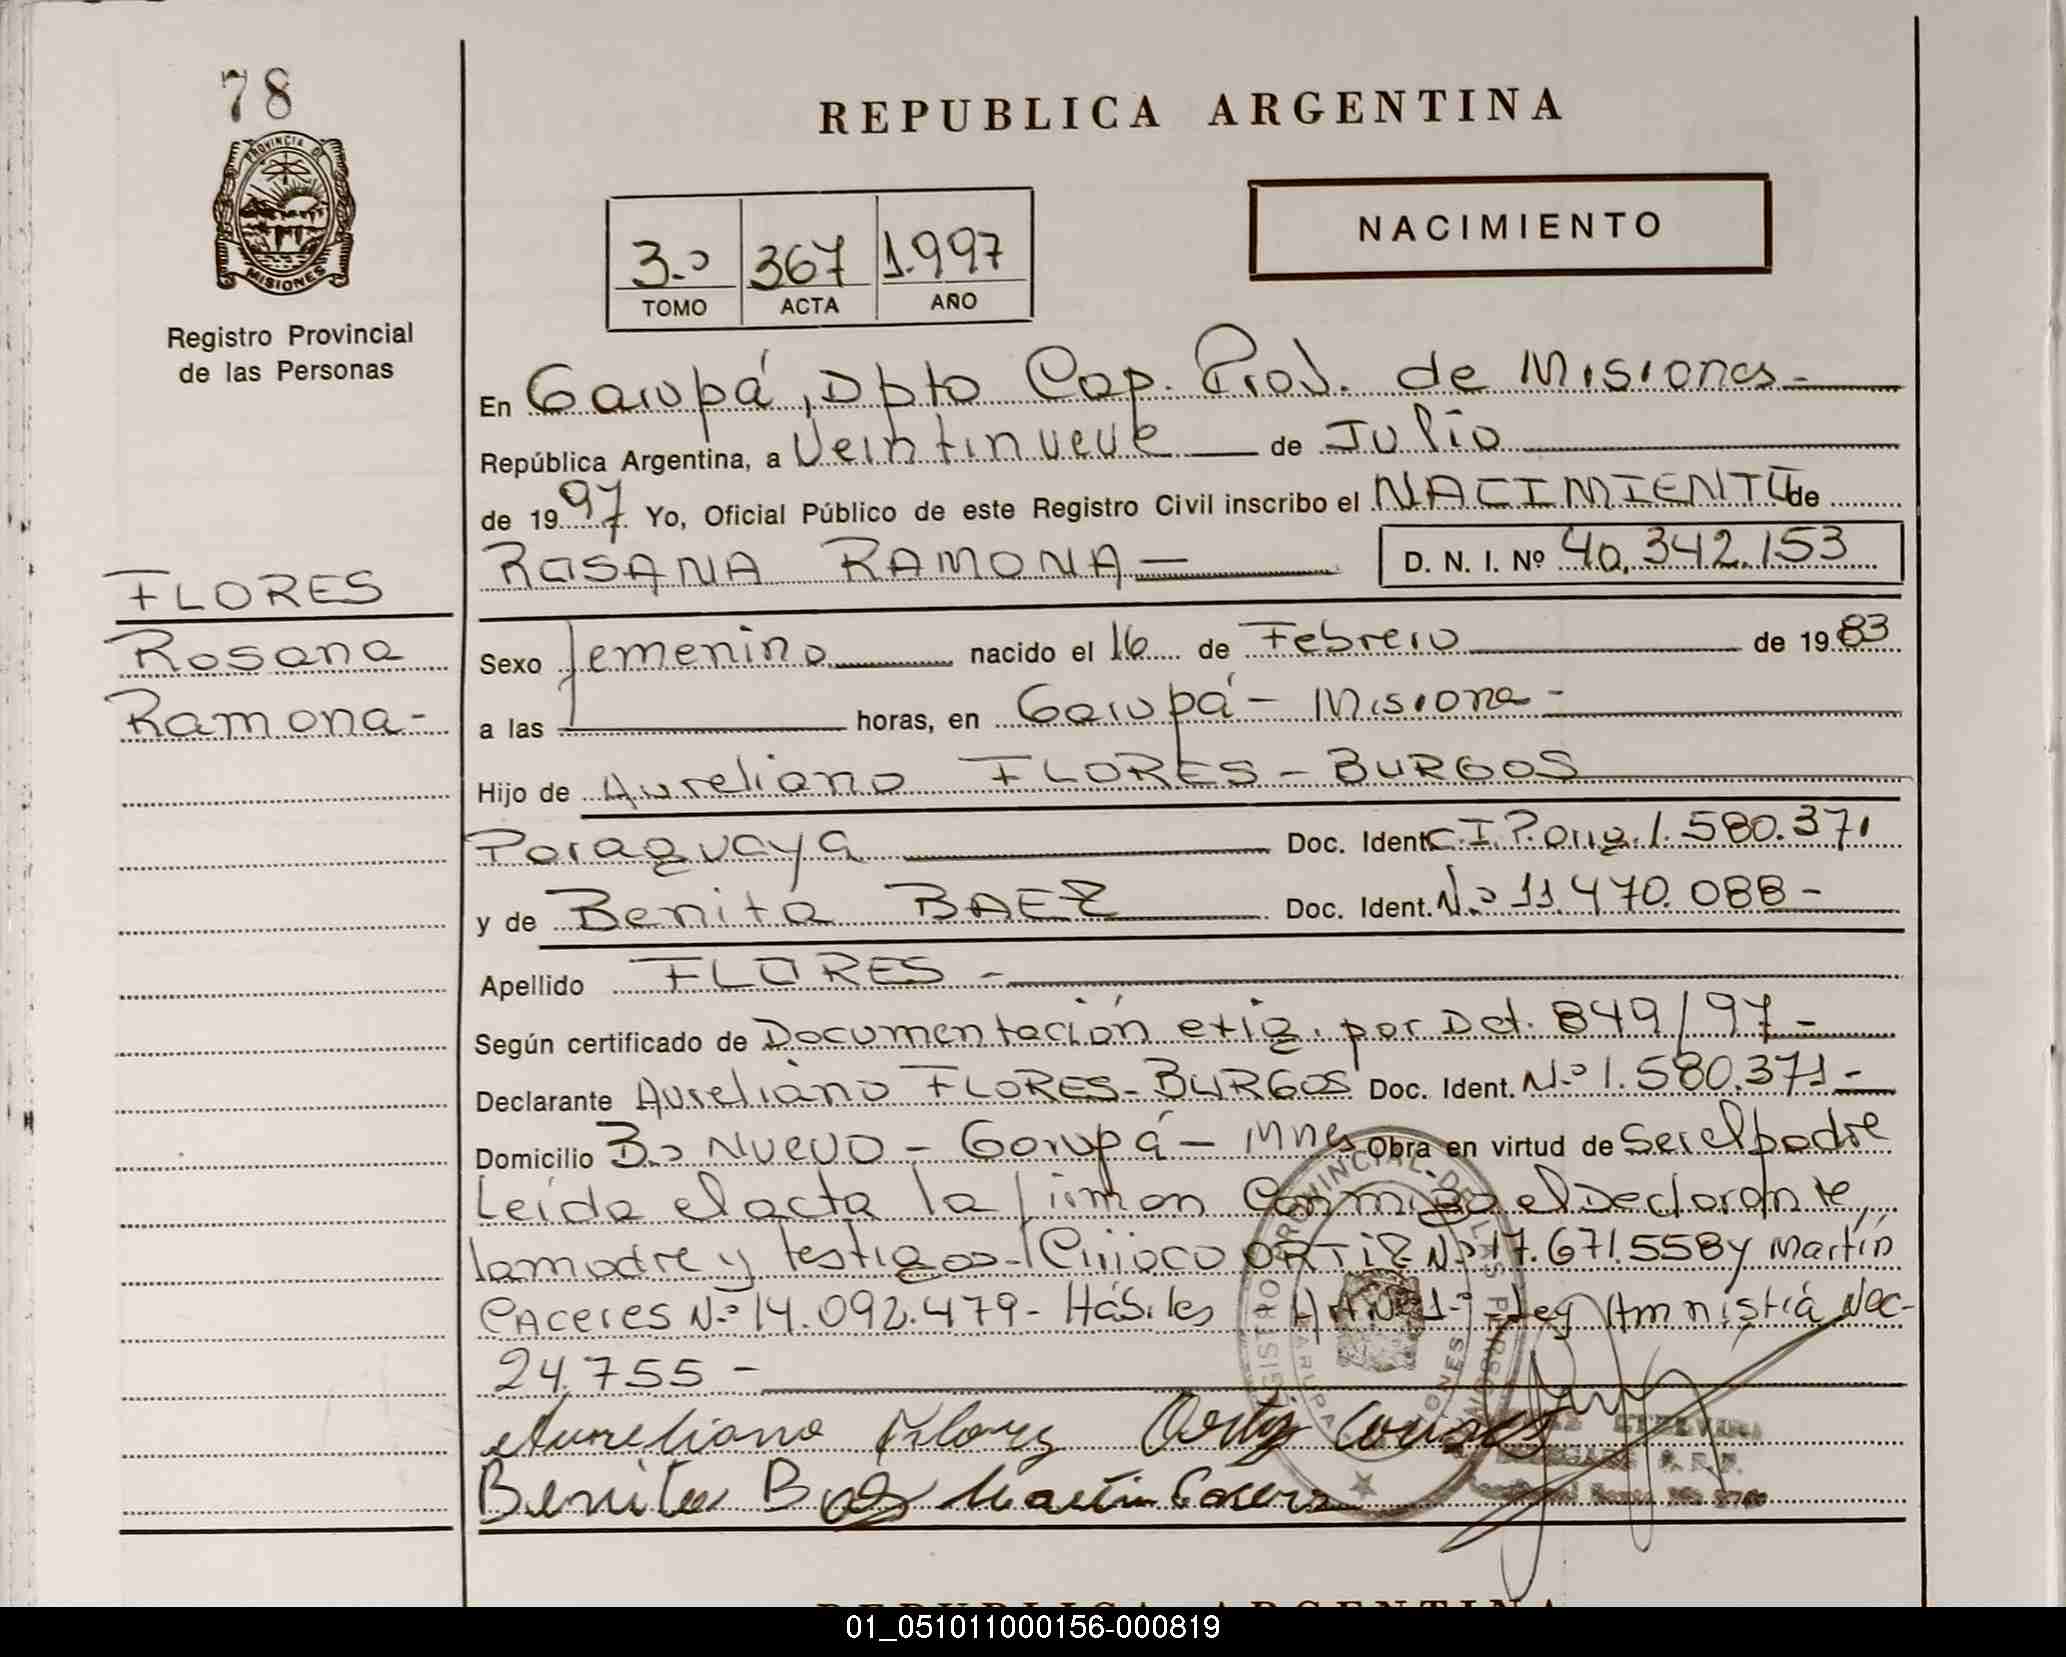 78
REPUBLICA ARGENTINA
PROVINCIA DE
MISIONES
NACIMIENTO
3.º 367 1.997
TOMO ACTA AÑO
Registro Provincial
de las Personas
En Garupá, Dpto Cap. Prov. de Misiones.-
República Argentina, a Veintinueve de Julio
de 1997. Yo, Oficial Público de este Registro Civil inscribo el NACIMIENTO de
ROSANA RAMONA — D. N. I. Nº 40.342.153
FLORES
Rosana
Ramona-
Sexo femenino nacido el 16 de Febrero de 1983
a las horas, en Garupá - Misione -
Hijo de Aureliano FLORES - BURGOS
Paraguaya Doc. Ident. C.I.Parag. 1.580.371
y de Benita BAEZ Doc. Ident. N.º 11.470.088 -
Apellido FLORES -
Según certificado de Documentación exig. por Dct. 849/97 -
Declarante Aureliano FLORES-BURGOS Doc. Ident. N.º 1.580.371 -
Domicilio B.º NUEVO - Garupá - Mnes Obra en virtud de Ser el padre
Leída el acta la firman Conmigo el Declarante,
la madre y testigos- ORTIZ N.º 17.671.558 y Martín
CACERES N.º 14.092.479 - Hábiles Ley Amnistiá Nac-
24.755 -
Aureliano Flores Ortiz
Benita Baez Martin Caceres
REGISTRO PROVINCIAL DE LAS PERSONAS
GARUPA MISIONES
REPUBLICA ARGENTINA
01_051011000156-000819